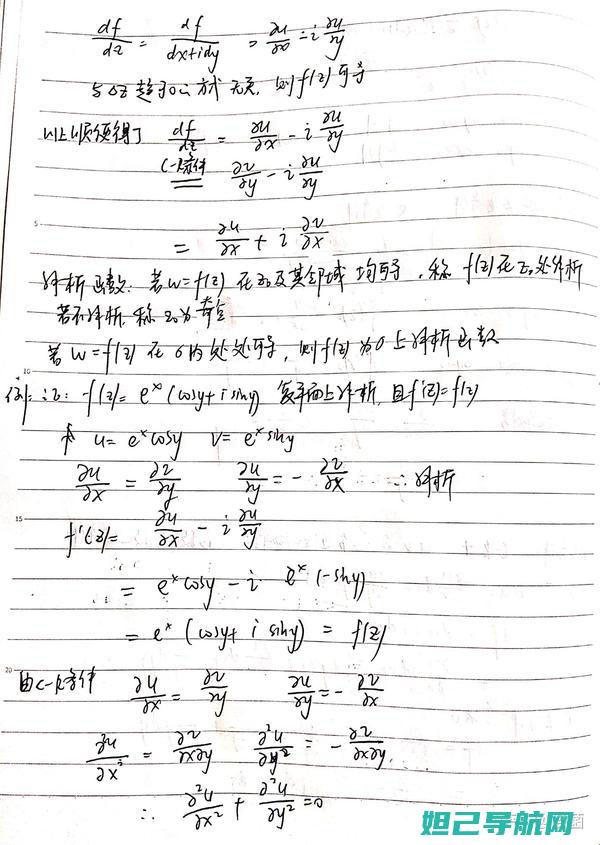 df/dz = df/(dx+idy) = ∂u/∂x - i ∂u/∂y
与Δz趋于0的方式无关, 则f(z)可导
以上顺便得了 df/dz = ∂u/∂x - i ∂u/∂y
C-R条件 ∂v/∂y - i ∂u/∂y
5
= ∂u/∂x + i ∂v/∂x
解析函数: 若w=f(z) 在z₀及其邻域 均可导, 称 f(z)在z₀处解析
若不解析, 称z₀为奇点
若 w=f(z) 在σ内处处可导, 则f(z)为σ上解析函数
10
例: 证: f(z)= eˣ(cosy+isiny) 复平面上解析, 且f'(z)=f(z)
u= eˣcosy v= eˣsiny
∂u/∂x = ∂v/∂y ∂u/∂y = - ∂v/∂x ∴ 解析
15
f'(z)= ∂u/∂x - i ∂u/∂y
= eˣcosy - i eˣ(-siny)
= eˣ(cosy+ i siny) = f(z)
20
由C-R条件 ∂u/∂x = ∂v/∂y ∂u/∂y = - ∂v/∂x
∂²u/∂x² = ∂²v/∂x∂y ∂²u/∂y² = - ∂²v/∂x∂y
∴ ∂²u/∂x² + ∂²u/∂y² =0
妲己导航网